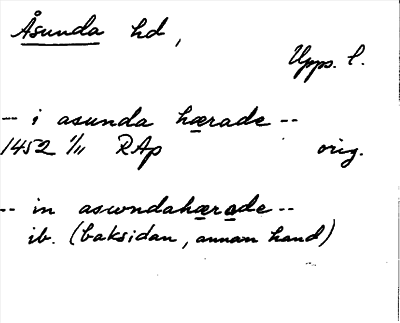 Åsunda hd,
Upps. l.
-- i asunda hærade --
1452 1/11 RAp orig.
-- in aswndahæræde --
ib. (baksidan, annan hand)